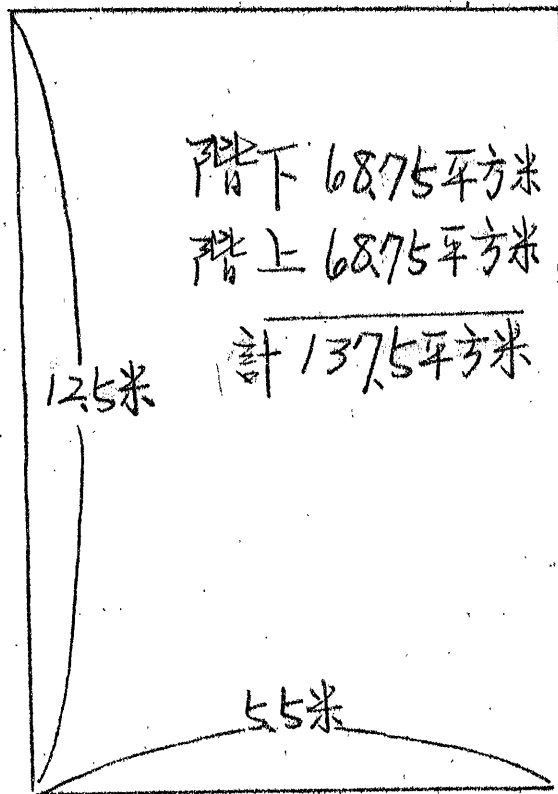 階下 68.75平方米
階上 68.75平方米
計 137.5平方米
12.5米
5.5米